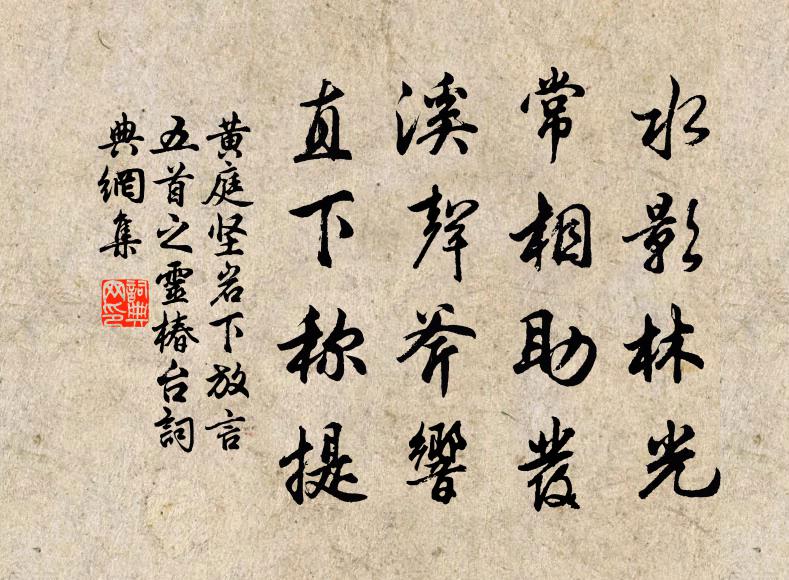 水影林光
常相助發
溪聲斧響
直下称提
黄庭坚岩下放言
五首之靈椿台詞
典網集
詞典
网印